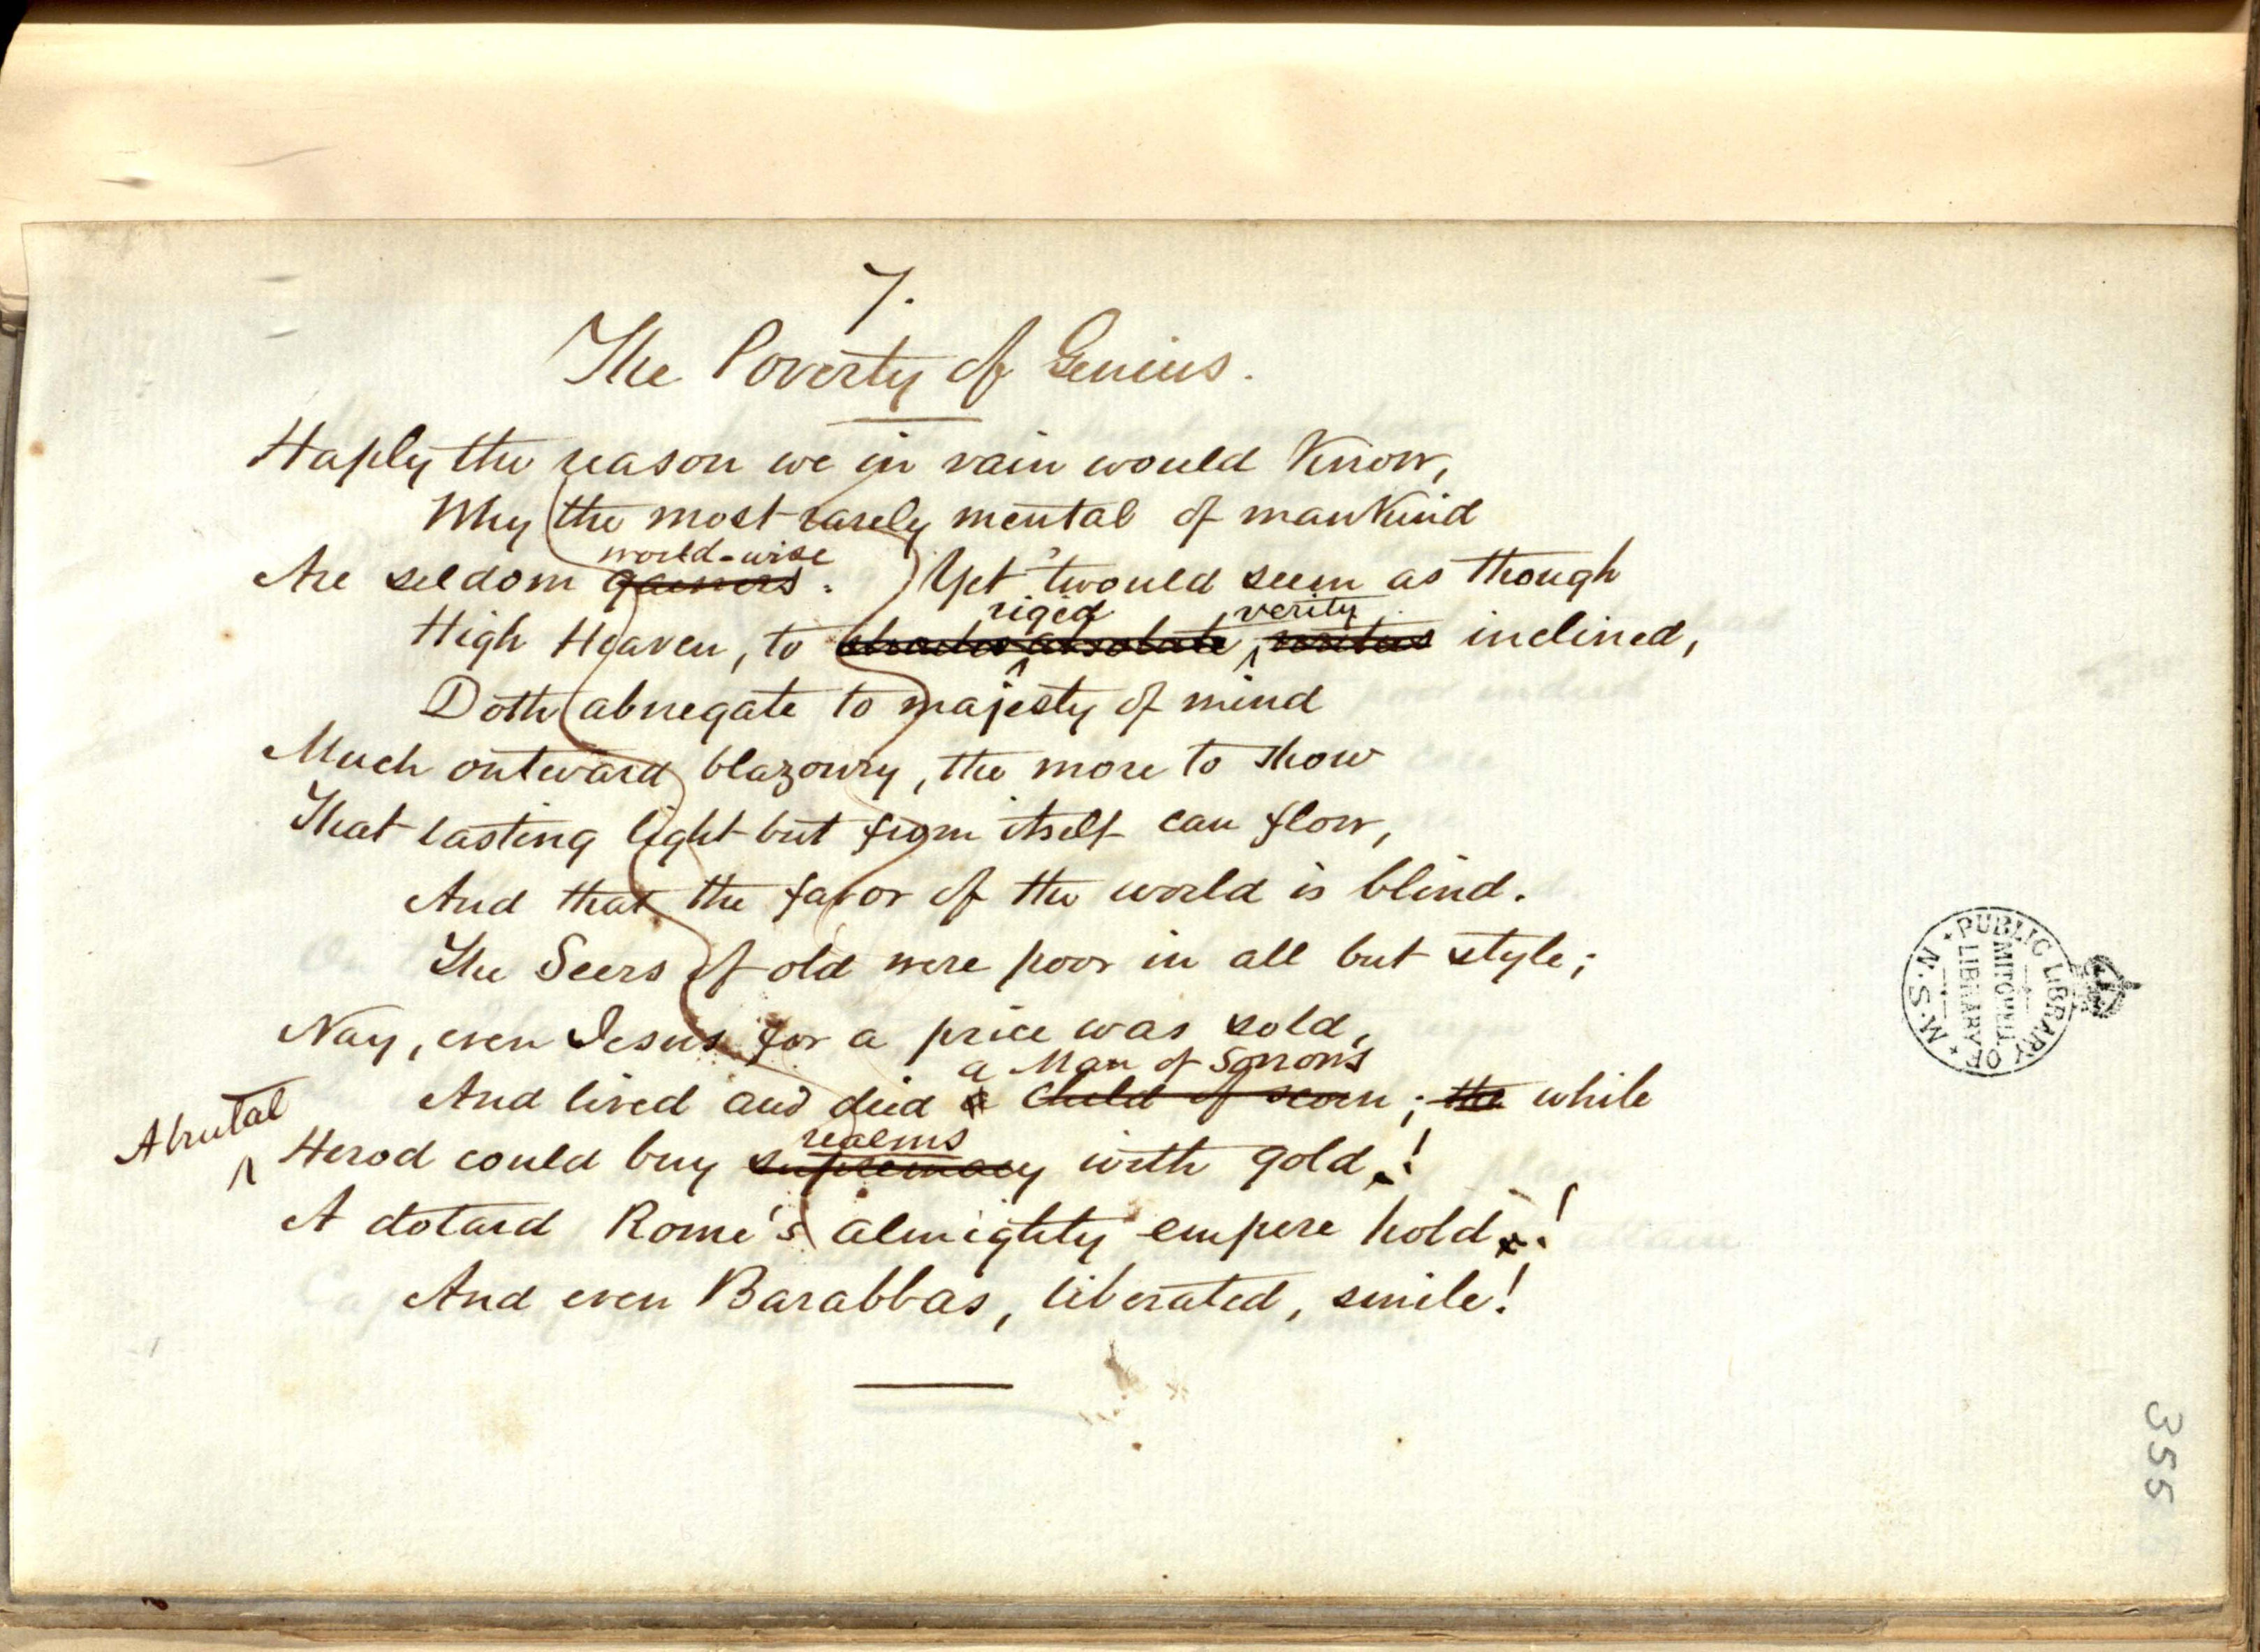 7.
The Poverty of Genius.
Haply the reason we in vain would know,
Why the most rarely mental of mankind
world-wise
Are seldom gainers. Yet 'twould seem as though
rigid verity
High Heaven, to absolute inclined,
Doth abnegate to majesty of mind
Much outward blazonry, the more to show
That lasting light but from itself can flow,
And that the favor of the world is blind.
The Seers of old were poor in all but style;
Nay, even Jesus for a price was sold,
a Man of Sorrows
And lived and died a child of scorn; the while
A brutal
realms
Herod could buy supremacy with gold!
A dotard Rome's almighty empire hold!
And even Barabbas, liberated, smile!
PUBLIC LIBRARY OF N.S.W.
MITCHELL
LIBRARY
355